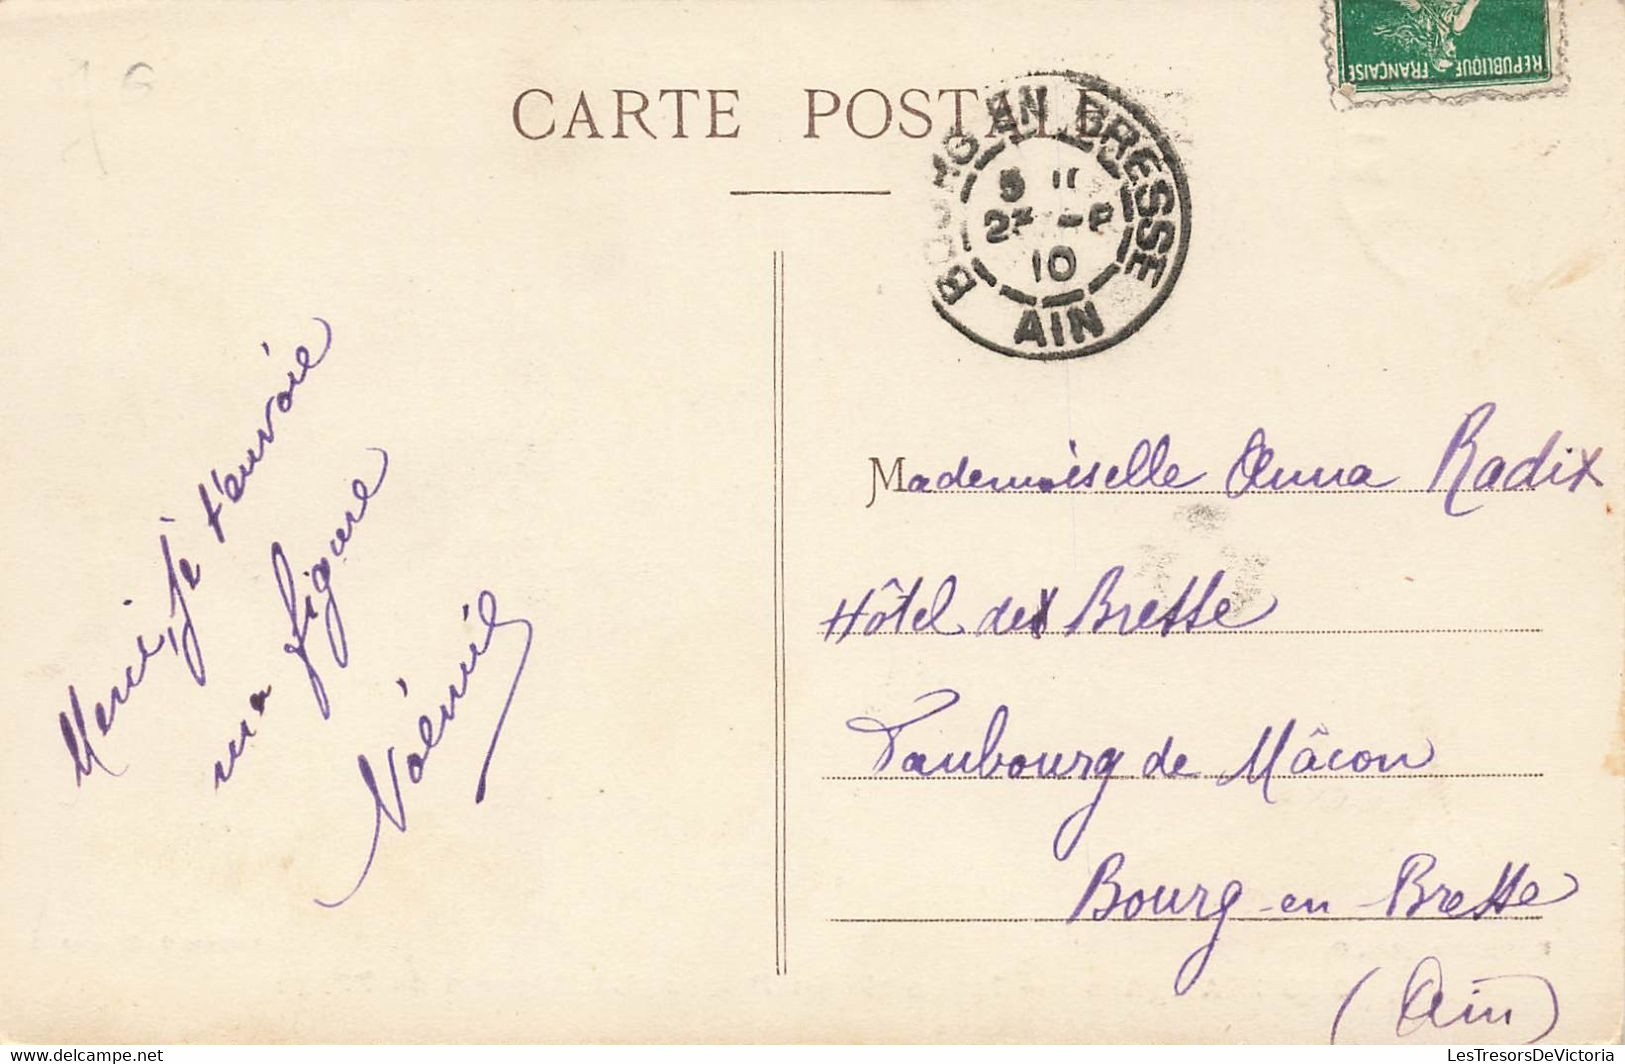 CARTE POSTALE
RÉPUBLIQUE FRANÇAISE
BOURG EN BRESSE
10
AIN
Merci, je t'envoie
ma figure
Noémie
Mademoiselle Anna Radix
Hôtel de Bresse
Faubourg de Mâcon
Bourg-en-Bresse
(Ain)
LesTresorsDeVictoria